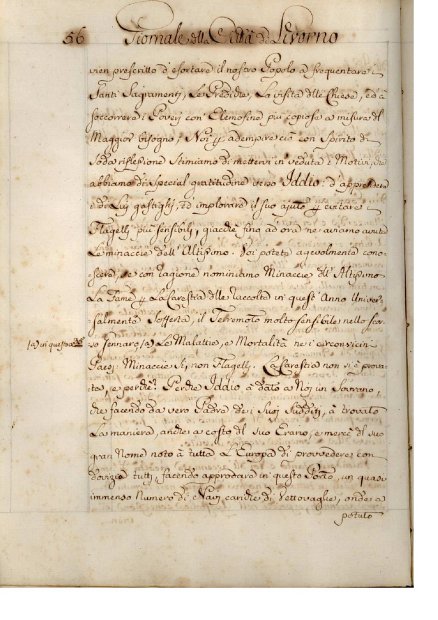 56 Giornale della Città di Livorno
vien prescritto d'esortare il nostro Popolo a frequentare i
Santi Sagramenti, Le Prediche, La visita delle Chiese, ed a
soccorrere i Poveri con Elemosine più copiose a misura del
Maggior bisogno; Noi per adempire ciò con Spirito di
Soda riflessione Stimiamo di metterVi in veduta i Motivi, che
abbiamo di special gratitudine verso Iddio: d'apprendere
i di Lui gastighi, ed implorare il suo ajuto per evitare
Flagelli più sensibili, giacchè fino ad ora ne aviamo avute
Le minaccie dell'Altissimo. Voi potete agevolmente cono-
scere, se con ragione nominiamo Minaccie dell'Altissimo
La Fame per La Carestia delle raccolte in quest'Anno Univer-
salmente Sofferta, il Terremoto molto sensibile nello scor-
so Gennaro, (a) Le Malattie, e Mortalità ne i circonvicini
(a) in questa Città
Paesi. Minaccie sì, non Flagelli. La Carestia non si è prova-
ta, e perchè? Perchè Iddio à dato a Noi un Sovrano,
che facendo da vero Padre de i suoi Sudditi, à trovato
La maniera, anche a costo del suo Erario, e mercè del suo
gran Nome noto à tutta L'Europa di provvedere con
dovizia tutti, facendo approdare in questo Porto, un quasi
immenso Numero di Navi cariche di Vettovaglie, onde a
potuto